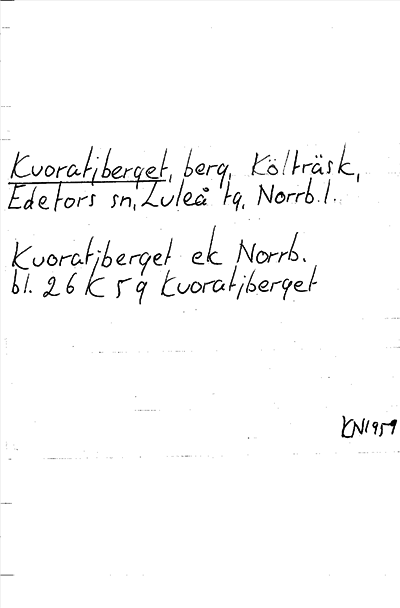 Kvoratjberget, berg, Költräsk,
Edefors sn, Luleå tg, Norrb. l.
Kvoratjberget ek Norrb.
bl. 26 K 5 g Kvoratjberget
KN 1959